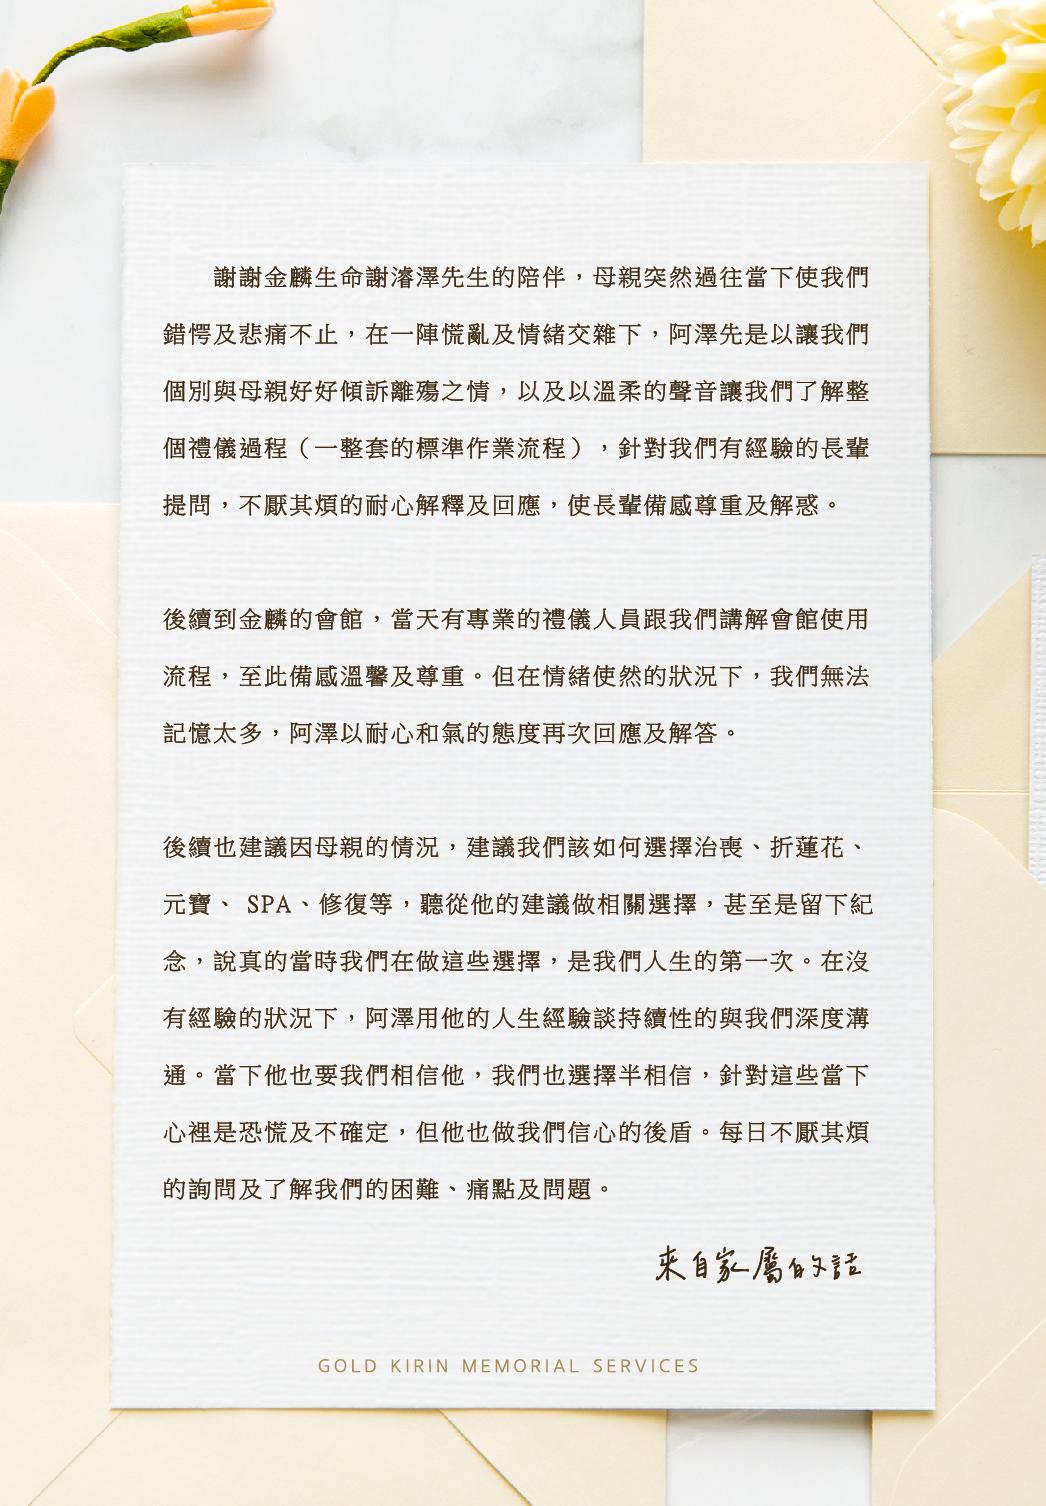 謝謝金麟生命謝濬澤先生的陪伴，母親突然過往當下使我們
錯愕及悲痛不止，在一陣慌亂及情緒交雜下，阿澤先是以讓我們
個別與母親好好傾訴離殤之情，以及以溫柔的聲音讓我們了解整
個禮儀過程（一整套的標準作業流程），針對我們有經驗的長輩
提問，不厭其煩的耐心解釋及回應，使長輩備感尊重及解惑。
後續到金麟的會館，當天有專業的禮儀人員跟我們講解會館使用
流程，至此備感溫馨及尊重。但在情緒使然的狀況下，我們無法
記憶太多，阿澤以耐心和氣的態度再次回應及解答。
後續也建議因母親的情況，建議我們該如何選擇治喪、折蓮花、
元寶、 SPA、修復等，聽從他的建議做相關選擇，甚至是留下紀
念，說真的當時我們在做這些選擇，是我們人生的第一次。在沒
有經驗的狀況下，阿澤用他的人生經驗談持續性的與我們深度溝
通。當下他也要我們相信他，我們也選擇半相信，針對這些當下
心裡是恐慌及不確定，但他也做我們信心的後盾。每日不厭其煩
的詢問及了解我們的困難、痛點及問題。
來自家屬的話
GOLD KIRIN MEMORIAL SERVICES